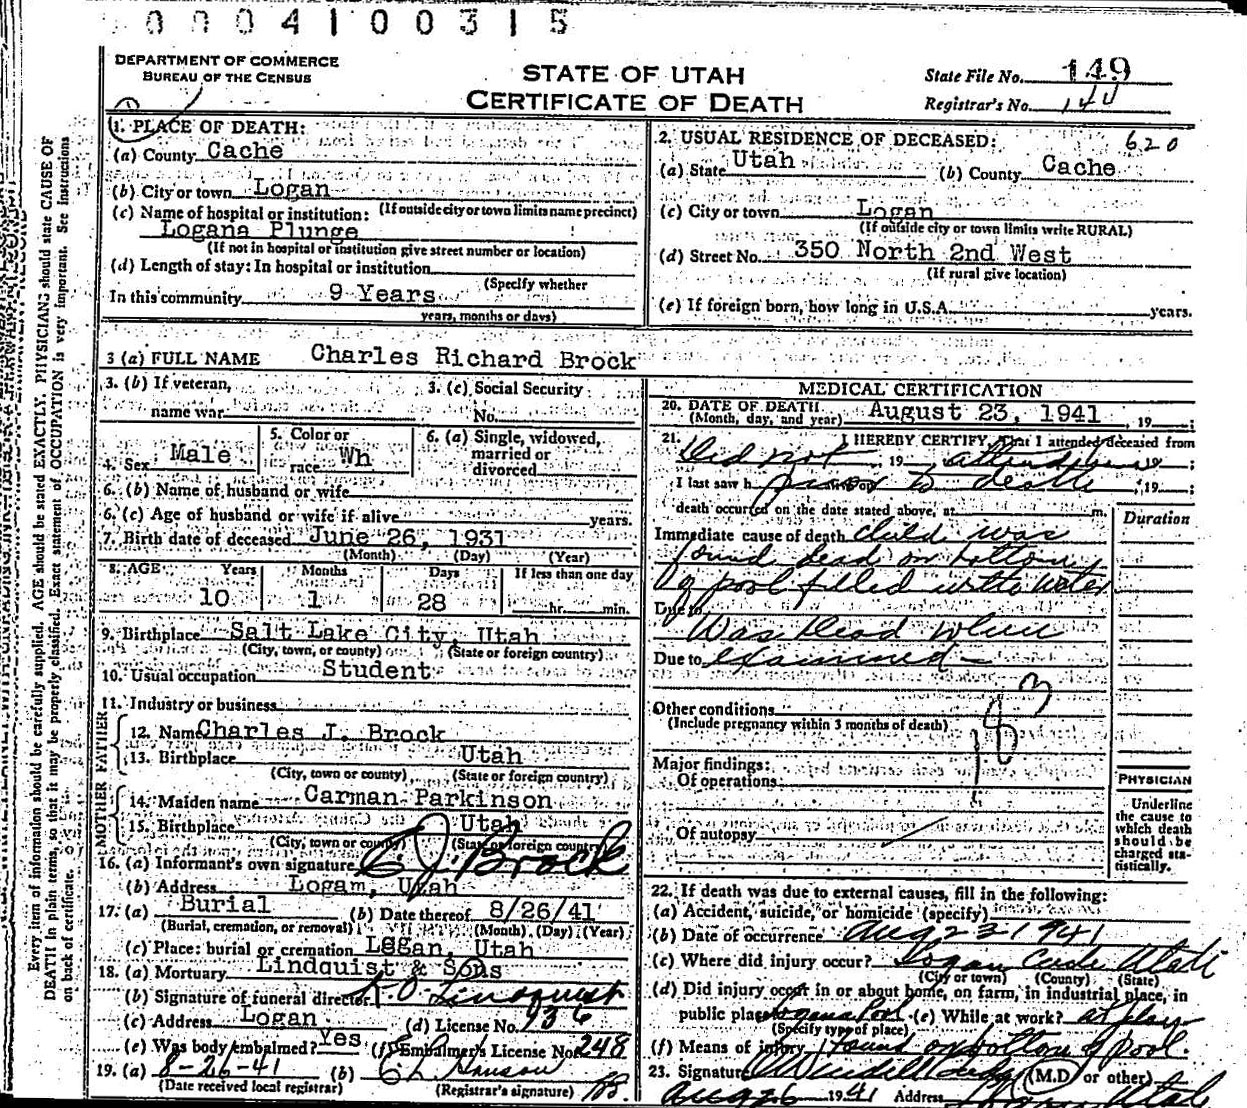 0 0 0 4 1 0 0 3 1 5
DEPARTMENT OF COMMERCE
BUREAU OF THE CENSUS
STATE OF UTAH
CERTIFICATE OF DEATH
State File No. 149
Registrar's No. 144
1. PLACE OF DEATH:
(a) County Cache
(b) City or town Logan
(c) Name of hospital or institution: (If outside city or town limits name precinct)
Logana Plunge
(If not in hospital or institution give street number or location)
(d) Length of stay: In hospital or institution
(Specify whether
In this community 9 Years
years, months or days)
2. USUAL RESIDENCE OF DECEASED: 620
(a) State Utah (b) County Cache
(c) City or town Logan
(If outside city or town limits write RURAL)
(d) Street No. 350 North 2nd West
(If rural give location)
(e) If foreign born, how long in U.S.A. years.
3 (a) FULL NAME Charles Richard Brock
3. (b) If veteran, 3. (c) Social Security
name war No.
4. Sex Male 5. Color or race Wh 6. (a) Single, widowed, married or divorced
6. (b) Name of husband or wife
6. (c) Age of husband or wife if alive years.
7. Birth date of deceased June 26, 1931
(Month) (Day) (Year)
8. AGE Years Months Days If less than one day
10 1 28 hr. min.
9. Birthplace Salt Lake City, Utah
(City, town, or county) (State or foreign country)
10. Usual occupation Student
11. Industry or business
FATHER
12. Name Charles J. Brock
13. Birthplace Utah
(City, town or county) (State or foreign country)
MOTHER
14. Maiden name Carman Parkinson
15. Birthplace Utah
(City, town or county) (State or foreign country)
16. (a) Informant's own signature C. J. Brock
(b) Address Logam, Utah
17. (a) Burial (b) Date thereof 8/26/41
(Burial, cremation, or removal) (Month) (Day) (Year)
(c) Place: burial or cremation Logan, Utah
18. (a) Mortuary Lindquist & Sons
(b) Signature of funeral director Lindquist
(c) Address Logan (d) License No. 936
(e) Was body embalmed? Yes (f) Embalmer's License No. 248
19. (a) 8-26-41 (b)
(Date received local registrar) (Registrar's signature)
MEDICAL CERTIFICATION
20. DATE OF DEATH August 23, 1941, 19 ;
(Month, day, and year)
21. I HEREBY CERTIFY, That I attended deceased from
Did not , 19 attend , 19 ;
I last saw h prior to death , 19 ;
death occurred on the date stated above, at m.
Duration
Immediate cause of death child was
found dead on bottom
of pool filled with water
Due to
Was dead when
Due to examined -
Other conditions
(Include pregnancy within 3 months of death)
183
Major findings:
Of operations
Of autopsy
PHYSICIAN
Underline
the cause to
which death
should be
charged sta-
tistically.
22. If death was due to external causes, fill in the following:
(a) Accident, suicide, or homicide (specify)
(b) Date of occurrence Aug 23 1941
(c) Where did injury occur? Logan Cache Utah
(City or town) (County) (State)
(d) Did injury occur in or about home, on farm, in industrial place, in
public place Logana Pool (e) While at work? at play
(Specify type of place)
(f) Means of injury found on bottom of pool.
23. Signature (M.D. or other)
Aug 26 1941 Address Logan Utah
Every item of information should be carefully supplied. AGE should be stated EXACTLY, PHYSICIANS should state CAUSE OF
DEATH in plain terms, so that it may be properly classified. Exact statement of OCCUPATION is very important. See Instructions
on back of certificate.